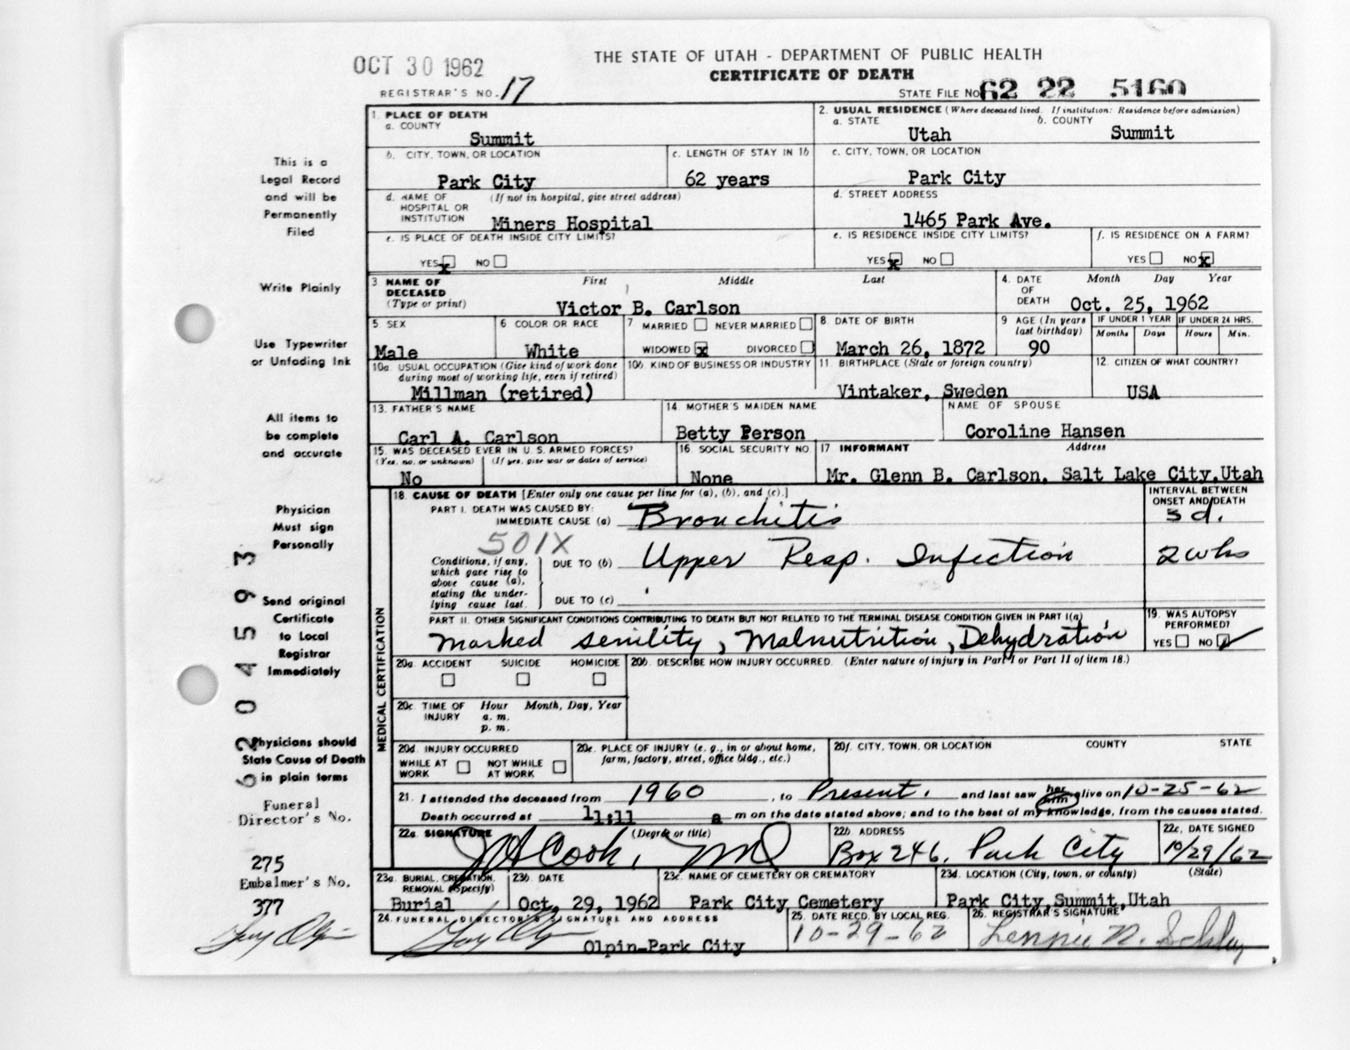 OCT 30 1962
THE STATE OF UTAH - DEPARTMENT OF PUBLIC HEALTH
CERTIFICATE OF DEATH
REGISTRAR'S NO. 17
STATE FILE NO. 62 22 5160
This is a
Legal Record
and will be
Permanently
Filed
Write Plainly
Use Typewriter
or Unfading Ink
All items to
be complete
and accurate
Physician
Must sign
Personally
Send original
Certificate
to Local
Registrar
Immediately
Physicians should
State Cause of Death
in plain terms
Funeral
Director's No.
275
Embalmer's No.
377
6204593
1. PLACE OF DEATH
a. COUNTY
Summit
2. USUAL RESIDENCE (Where deceased lived. If institution: Residence before admission)
a. STATE Utah b. COUNTY Summit
b. CITY, TOWN, OR LOCATION
Park City
c. LENGTH OF STAY IN 1b
62 years
c. CITY, TOWN, OR LOCATION
Park City
d. NAME OF (If not in hospital, give street address)
HOSPITAL OR
INSTITUTION Miners Hospital
d. STREET ADDRESS
1465 Park Ave.
e. IS PLACE OF DEATH INSIDE CITY LIMITS?
YES x NO
e. IS RESIDENCE INSIDE CITY LIMITS?
YES x NO
f. IS RESIDENCE ON A FARM?
YES NO x
3 NAME OF First Middle Last
DECEASED
(Type or print) Victor B. Carlson
4. DATE Month Day Year
OF
DEATH Oct. 25, 1962
5 SEX
Male
6 COLOR OR RACE
White
7 MARRIED NEVER MARRIED
WIDOWED x DIVORCED
8 DATE OF BIRTH
March 26, 1872
9 AGE (In years last birthday)
90
IF UNDER 1 YEAR
Months Days
IF UNDER 24 HRS.
Hours Min.
10a. USUAL OCCUPATION (Give kind of work done
during most of working life, even if retired)
Millman (retired)
10b. KIND OF BUSINESS OR INDUSTRY
11 BIRTHPLACE (State or foreign country)
Vintaker, Sweden
12. CITIZEN OF WHAT COUNTRY?
USA
13. FATHER'S NAME
Carl A. Carlson
14 MOTHER'S MAIDEN NAME
Betty Person
NAME OF SPOUSE
Coroline Hansen
15. WAS DECEASED EVER IN U.S. ARMED FORCES?
(Yes, no, or unknown) (If yes, give war or dates of service)
No
16 SOCIAL SECURITY NO
None
17 INFORMANT Address
Mr. Glenn B. Carlson, Salt Lake City, Utah
MEDICAL CERTIFICATION
18. CAUSE OF DEATH [Enter only one cause per line for (a), (b), and (c).]
PART I. DEATH WAS CAUSED BY:
IMMEDIATE CAUSE (a) Bronchitis
INTERVAL BETWEEN
ONSET AND DEATH
3 d.
501X
Conditions, if any,
which gave rise to
above cause (a),
stating the under-
lying cause last.
DUE TO (b) Upper Resp. Infection 2 wks
DUE TO (c)
PART II. OTHER SIGNIFICANT CONDITIONS CONTRIBUTING TO DEATH BUT NOT RELATED TO THE TERMINAL DISEASE CONDITION GIVEN IN PART I(a)
Marked Senility, Malnutrition, Dehydration
19. WAS AUTOPSY
PERFORMED?
YES NO
20a. ACCIDENT SUICIDE HOMICIDE
20b. DESCRIBE HOW INJURY OCCURRED. (Enter nature of injury in Part I or Part II of item 18.)
20c. TIME OF Hour Month, Day, Year
INJURY a. m.
p. m.
20d. INJURY OCCURRED
WHILE AT WORK NOT WHILE AT WORK
20e. PLACE OF INJURY (e. g., in or about home,
farm, factory, street, office bldg., etc.)
20f. CITY, TOWN, OR LOCATION COUNTY STATE
21. I attended the deceased from 1960, to Present. and last saw her him alive on 10-25-62
Death occurred at 11:11 a m on the date stated above; and to the best of my knowledge, from the causes stated.
22a. SIGNATURE (Degree or title)
Cook, MD
22b ADDRESS
Box 246, Park City
22c. DATE SIGNED
10/29/62
23a. BURIAL, CREMATION,
REMOVAL (Specify)
Burial
23b DATE
Oct. 29, 1962
23c. NAME OF CEMETERY OR CREMATORY
Park City Cemetery
23d. LOCATION (City, town, or county) (State)
Park City, Summit, Utah
24. FUNERAL DIRECTOR'S SIGNATURE AND ADDRESS
Olpin-Park City
25. DATE RECD. BY LOCAL REG.
10-29-62
26. REGISTRAR'S SIGNATURE